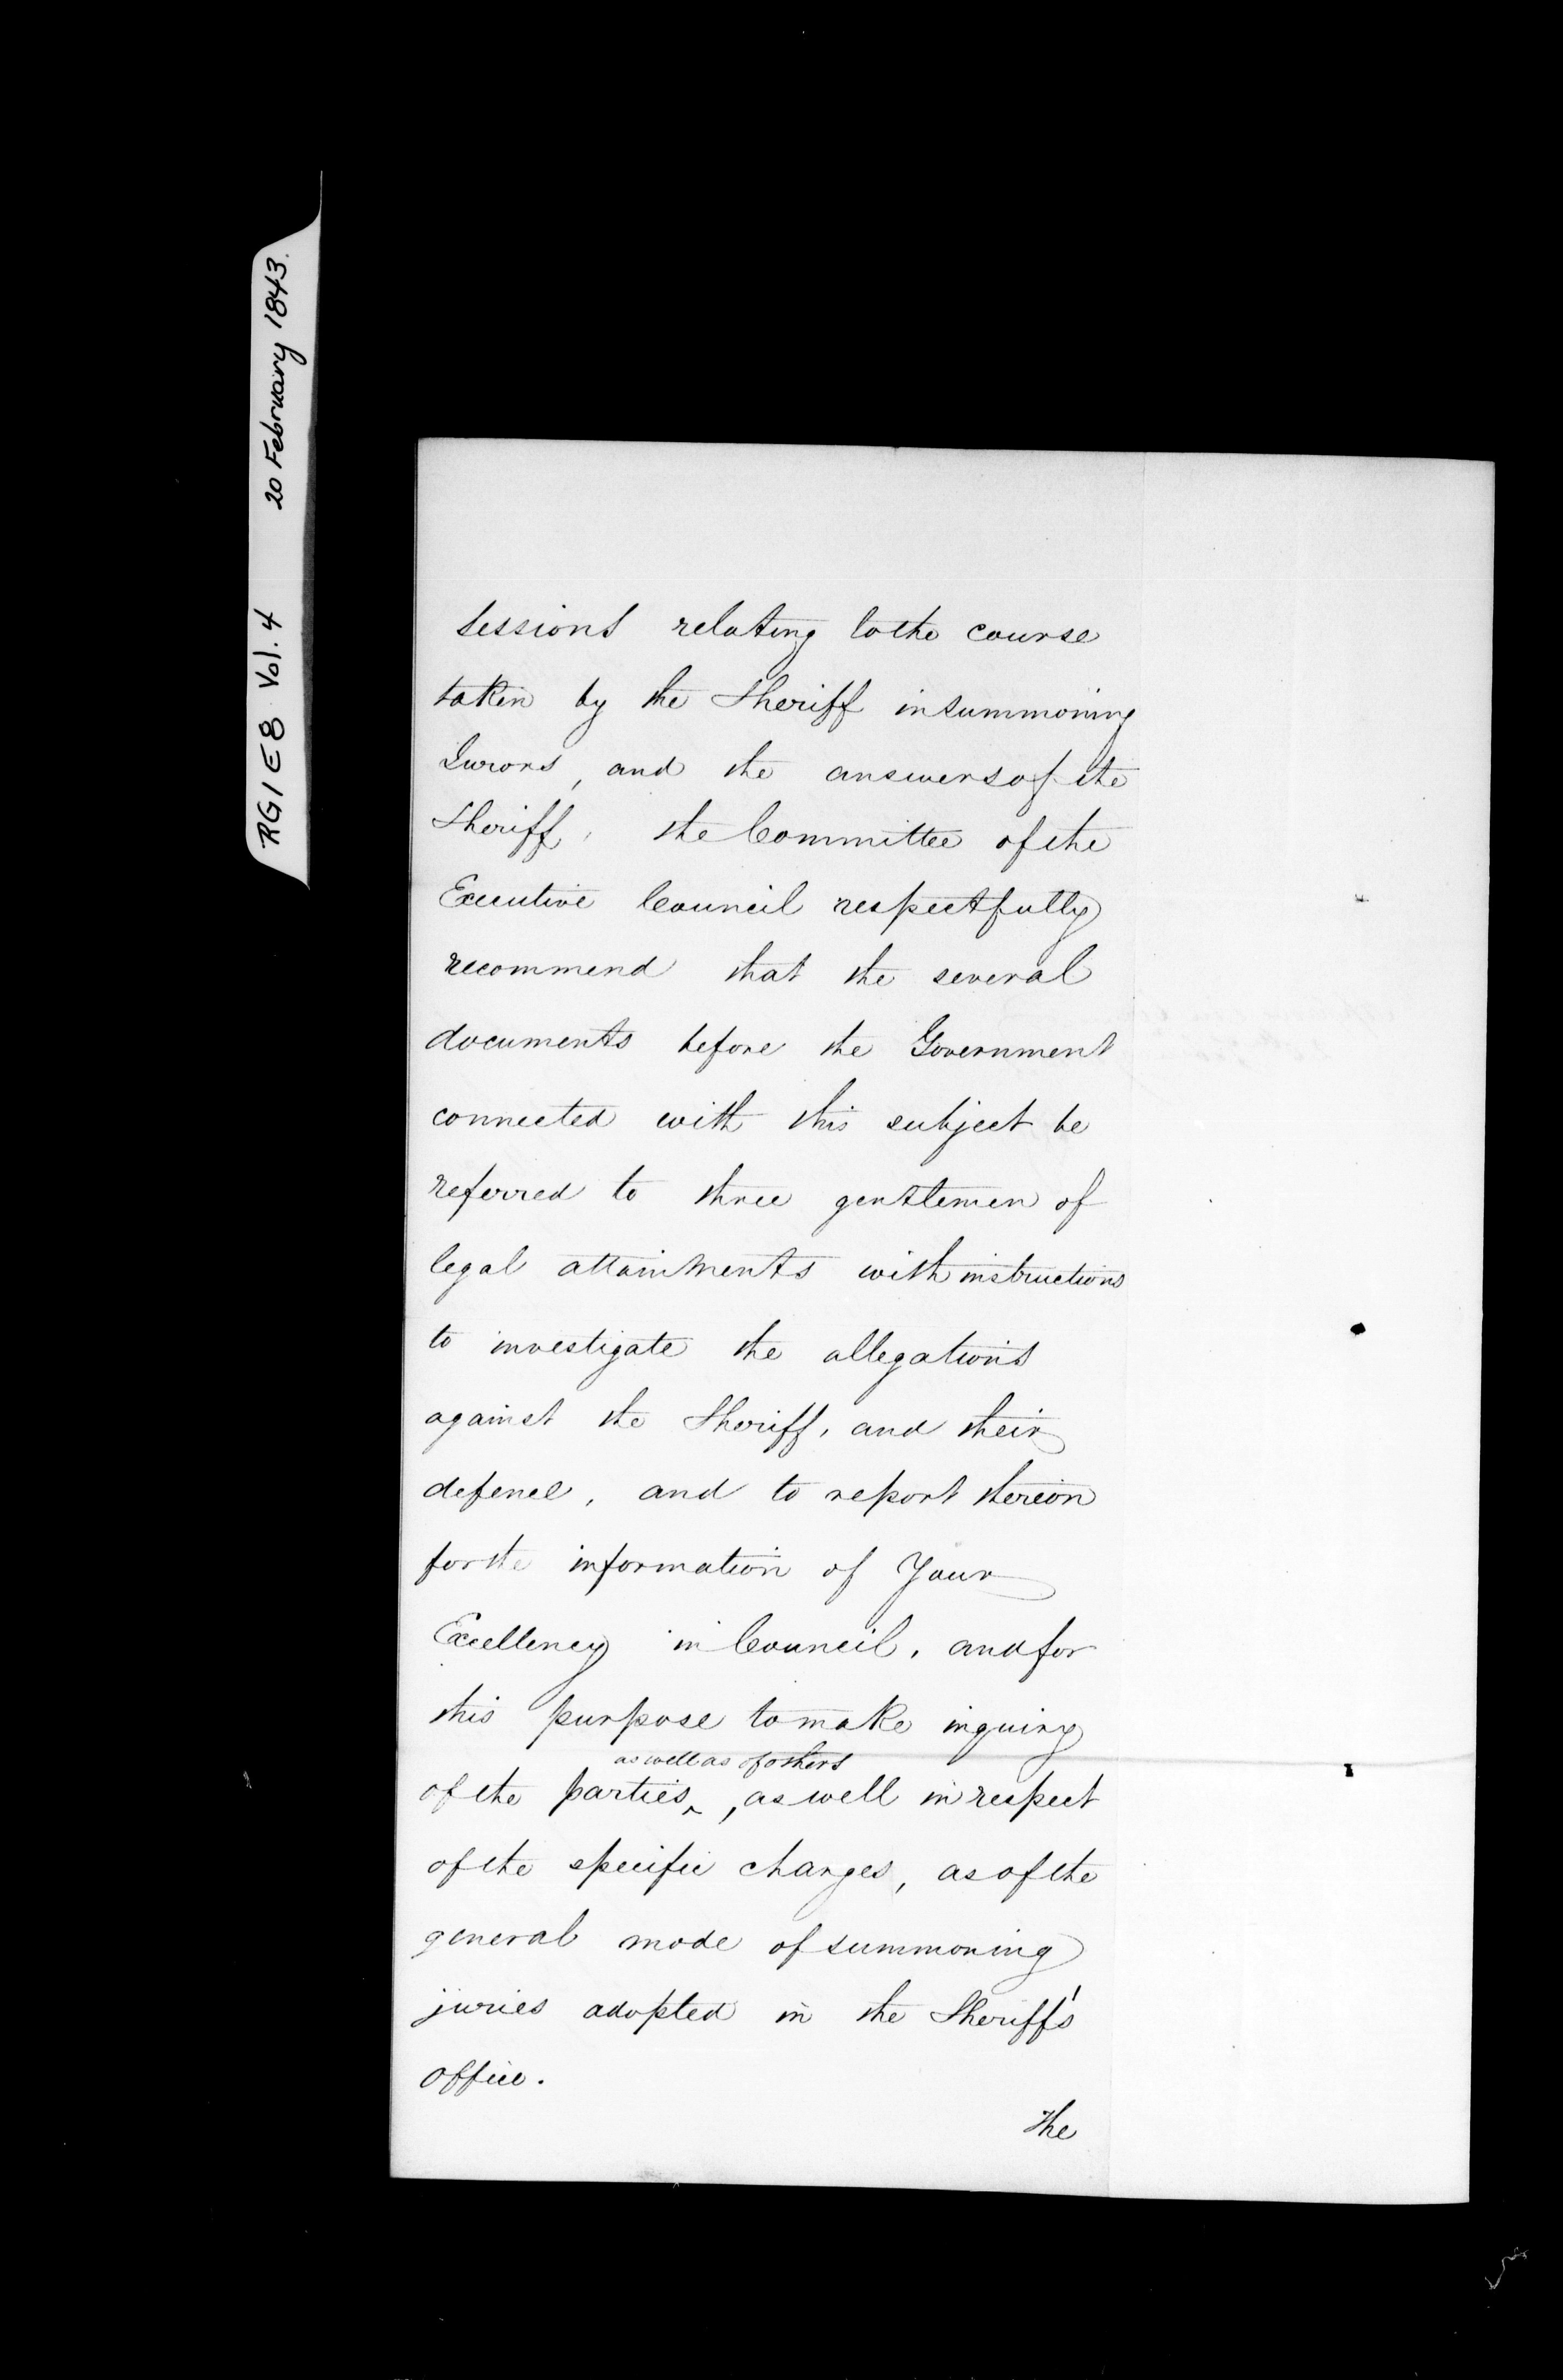 RG1E8 Vol. 4 20 February 1843.
Sessions relating to the course
taken by the Sheriff in summoning
Jurors, and the answers of the
Sheriff, the Committee of the
Executive Council respectfully
recommend that the several
documents before the Government
connected with this subject be
referred to three gentlemen of
legal attainments with instructions
to investigate the allegations
against the Sheriff, and their
defence, and to report thereon
for the information of Your
Excellency in Council, and for
this purpose to make inquiry
as well as of others
of the parties^, as well in respect
of the specific charges, as of the
general mode of summoning
juries adopted in the Sheriff's
office.
The